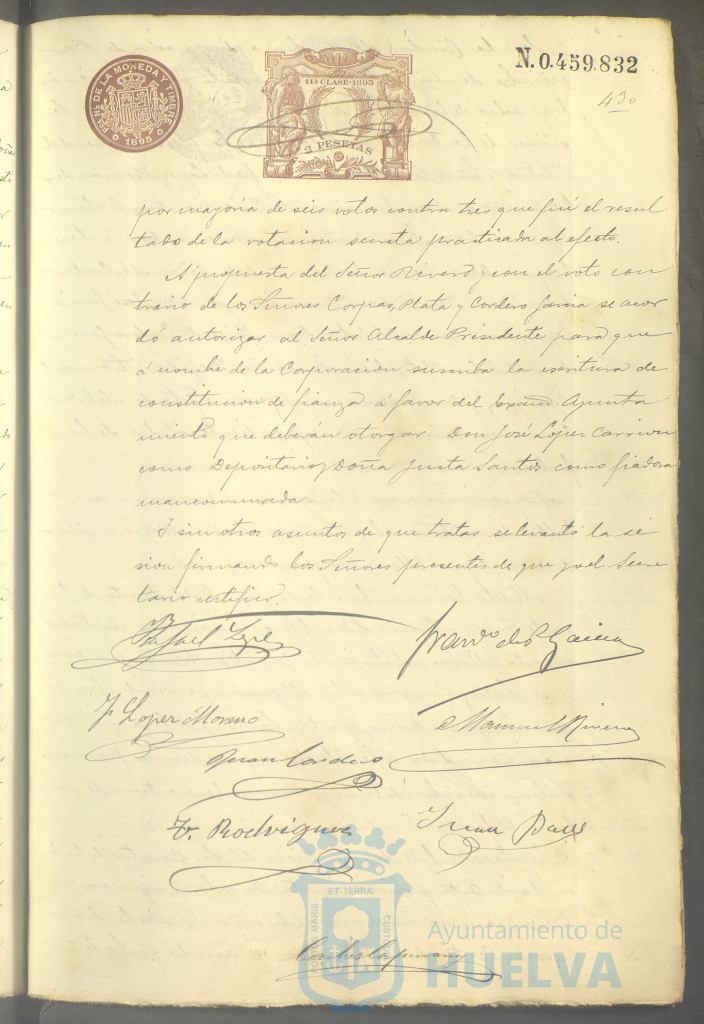 FCA. NAL. DE LA MONEDA Y TIMBRE
1895
11ª CLASE-1895
2 PESETAS
N. 0.459.832
430
por mayoria de seis votos contra tres que fué el resul
tado de la votacion secreta practicada al efecto.
A propuesta del Señor Rivero y con el voto con
trario de los Señores Corpas, Plata y Cordero Garcia se acor
dó autorizar al Señor Alcalde Presidente para que
á nombre de la Corporacion suscriba la escritura de
constitucion de fianza á favor del Excmo Ayunta
miento que deberán otorgar Don José Lopez Carrion
como Depositario y Doña Justa Santos como fiadora
mancomunada
Y sin otros asuntos de que tratar se levantó la se
sion firmando los Señores presentes de que yo el Secre
tario certifico.
Rafael Lopez
J Lopez Moreno
Manuel Rivero
Juan Cordero
F. Rodriguez
Juan
PORTUS MARIS
ET TERRÆ
CUSTODIA
Ayuntamiento de
HUELVA